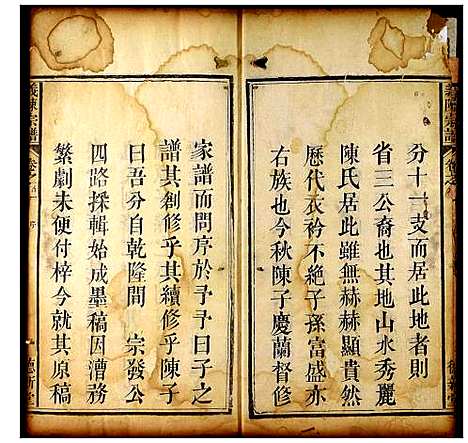 分十一支而居此地者則
省三公裔也其地山水秀麗
陳氏居此雖無赫赫顯貴然
歷代衣衿不絶子孫富盛亦
右族也今秋陳子慶蘭督修
家譜而問序於予予曰子之
譜其創修乎其續修乎陳子
曰吾分自乾隆間 宗發公
四路採輯始成墨稿因漕務
繁劇未便付梓今就其原稿
義陳宗譜
卷之首
序
德新堂